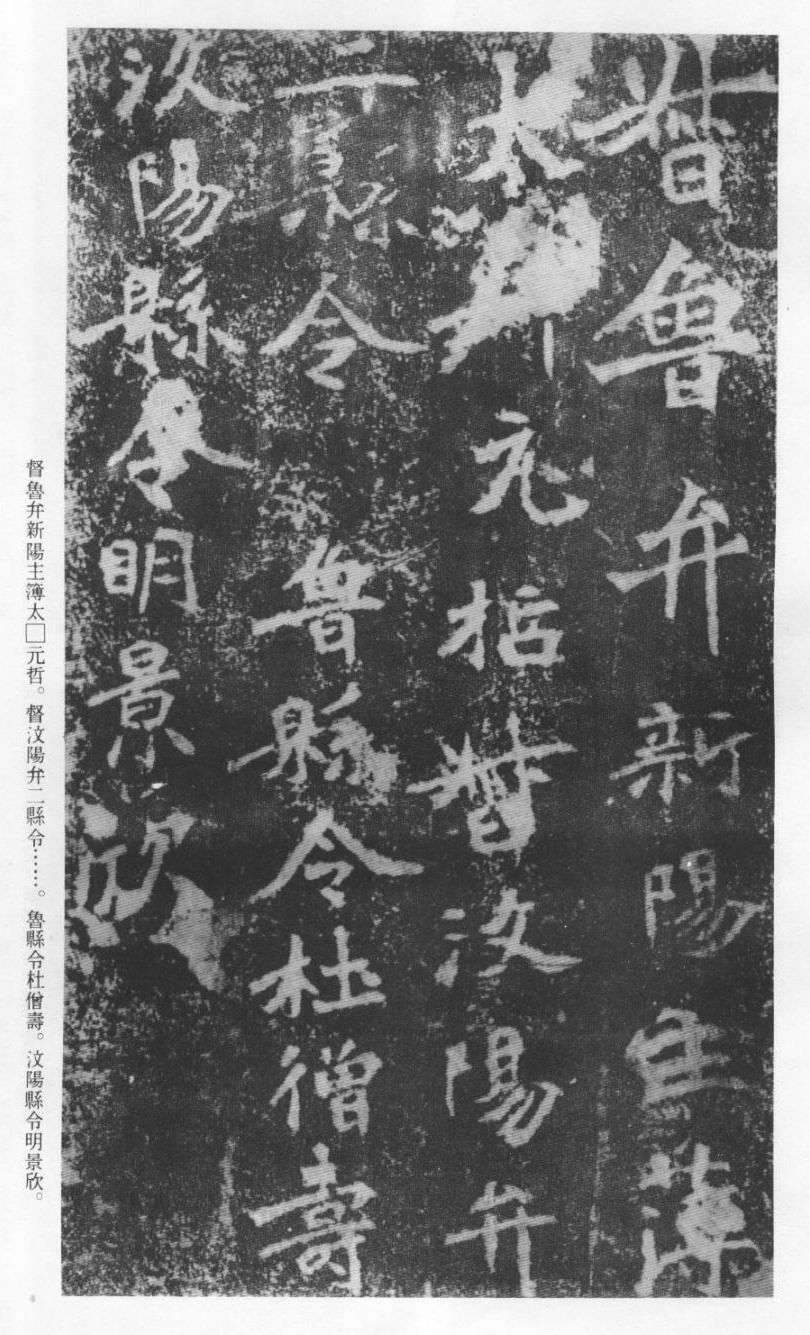 督魯弁新陽主簿
太 元哲督汶陽弁
二縣令 魯縣令杜僧壽
汶陽縣令明景欣
督魯弁新陽主簿太□元哲。督汶陽弁二縣令……。魯縣令杜僧壽。汶陽縣令明景欣。